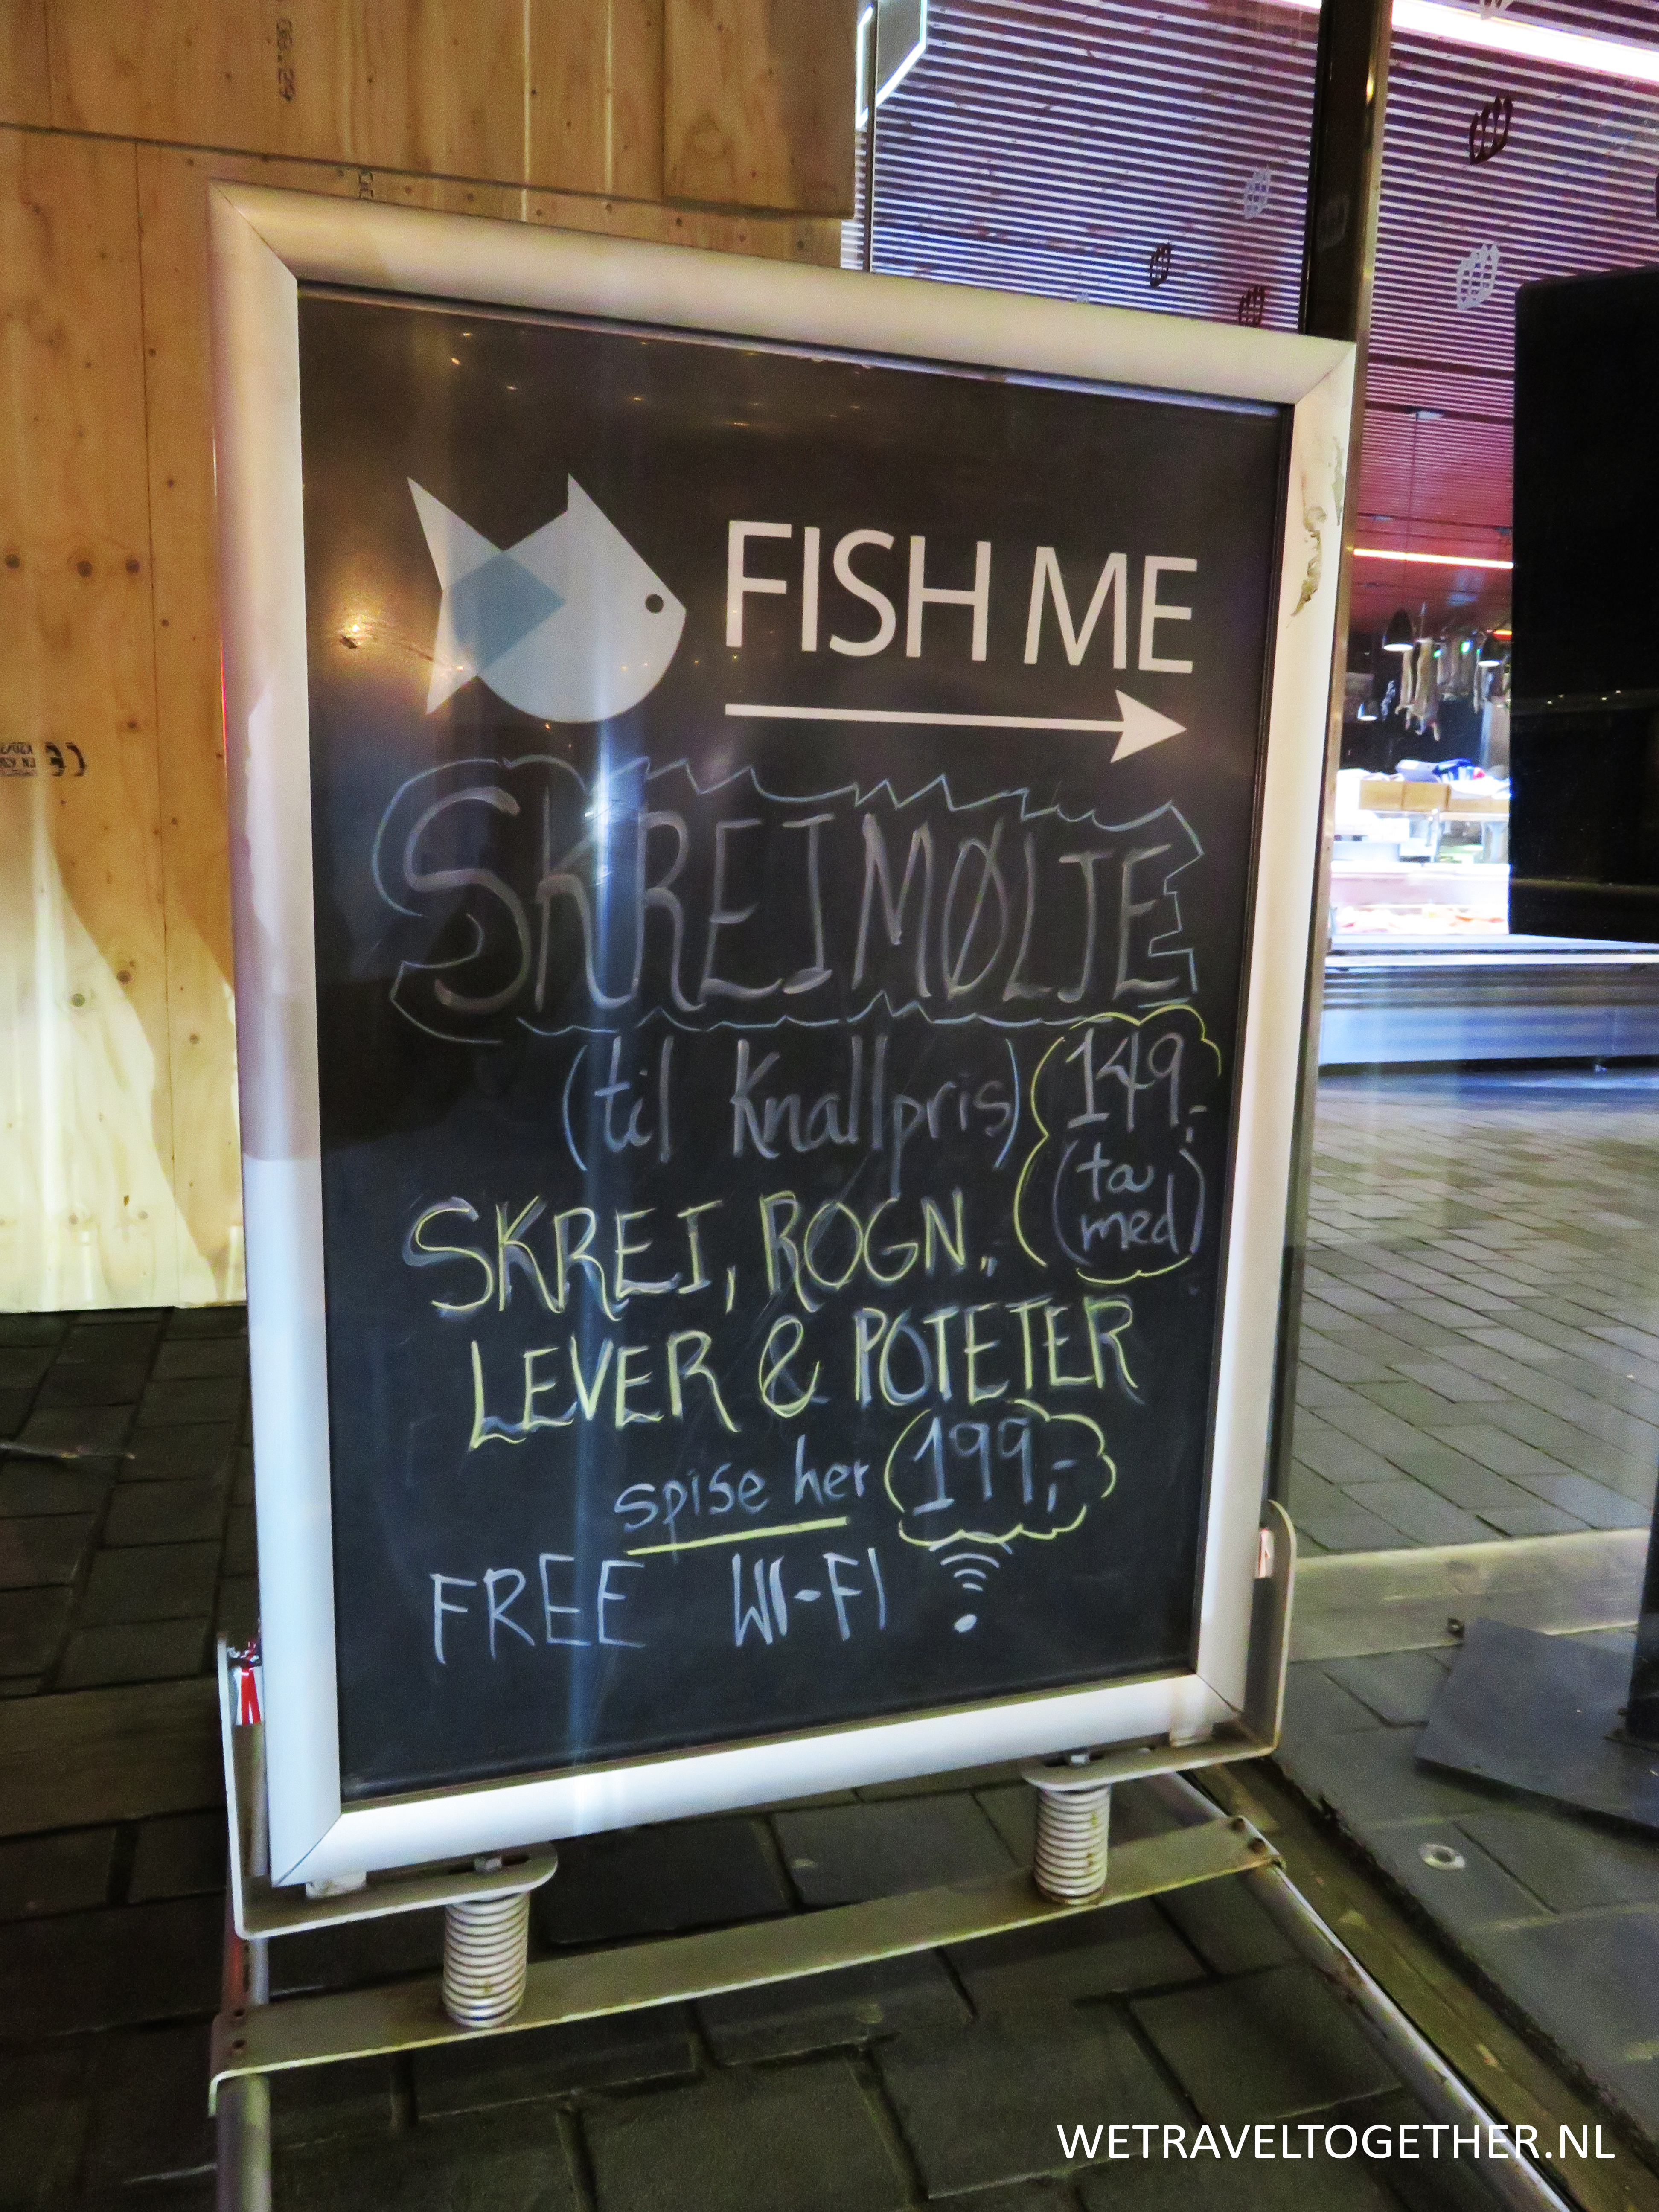 FISH ME
SKREIMØLJE
(til Knallpris)
149,-
(ta
med)
SKREI, ROGN,
LEVER & POTETER
spise her 199,-
FREE WI-FI
WETRAVELTOGETHER.NL